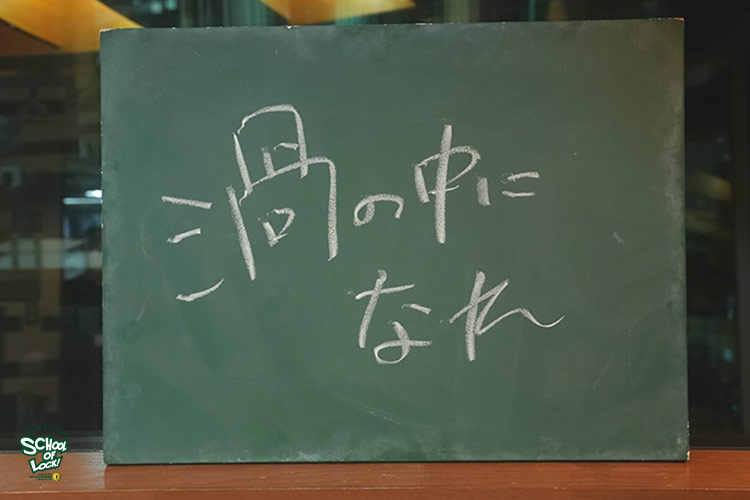 渦の中に
なれ
SCHOOL
OF
LOCK!